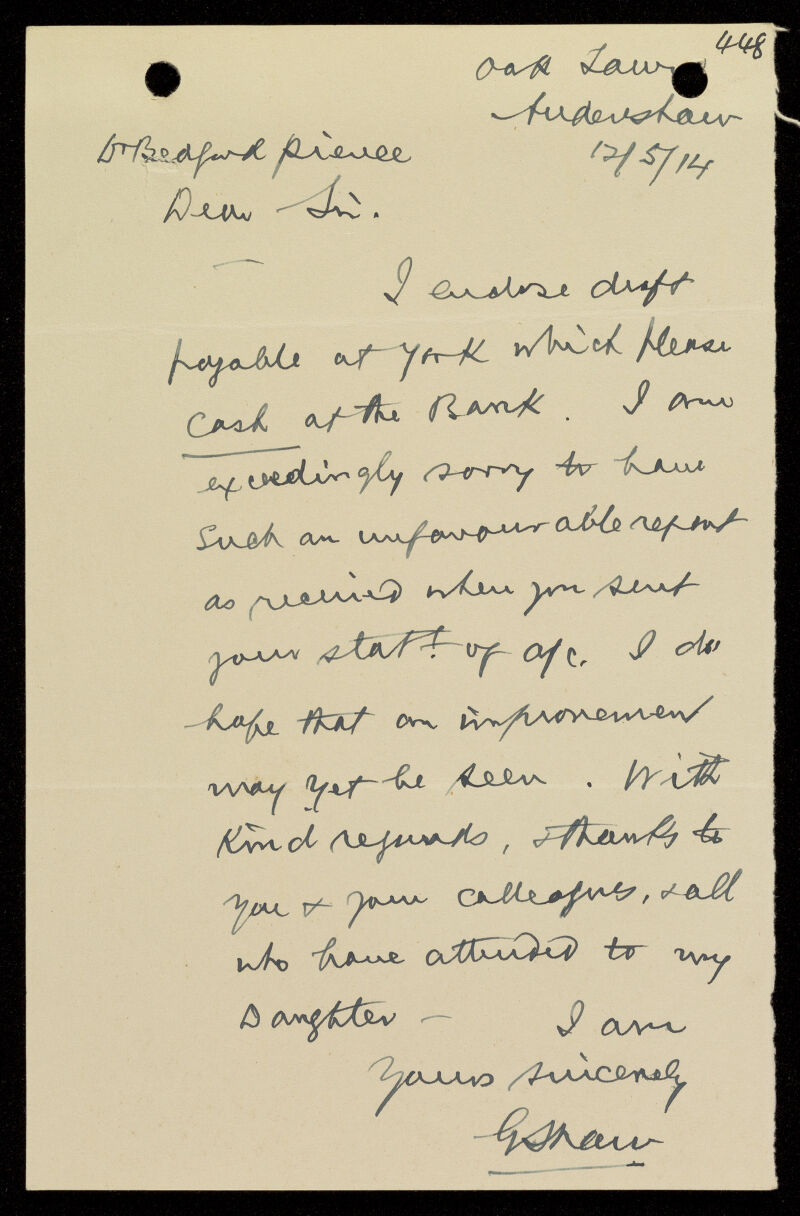 448
Oak Lawn
Audenshaw
12/5/14
Dr Bedford Pierce
Dear Sir.
I enclose draft
payable at York which please
Cash at the Bank. I am
exceedingly sorry to have
such an unfavourable report
as received when you sent
your statt. of a/c. I do
hope that an improvement
may yet be seen. With
Kind regards, & thanks to
you & your colleagues, & all
who have attended to my
Daughter —
I am
Yours sincerely
G Shaw